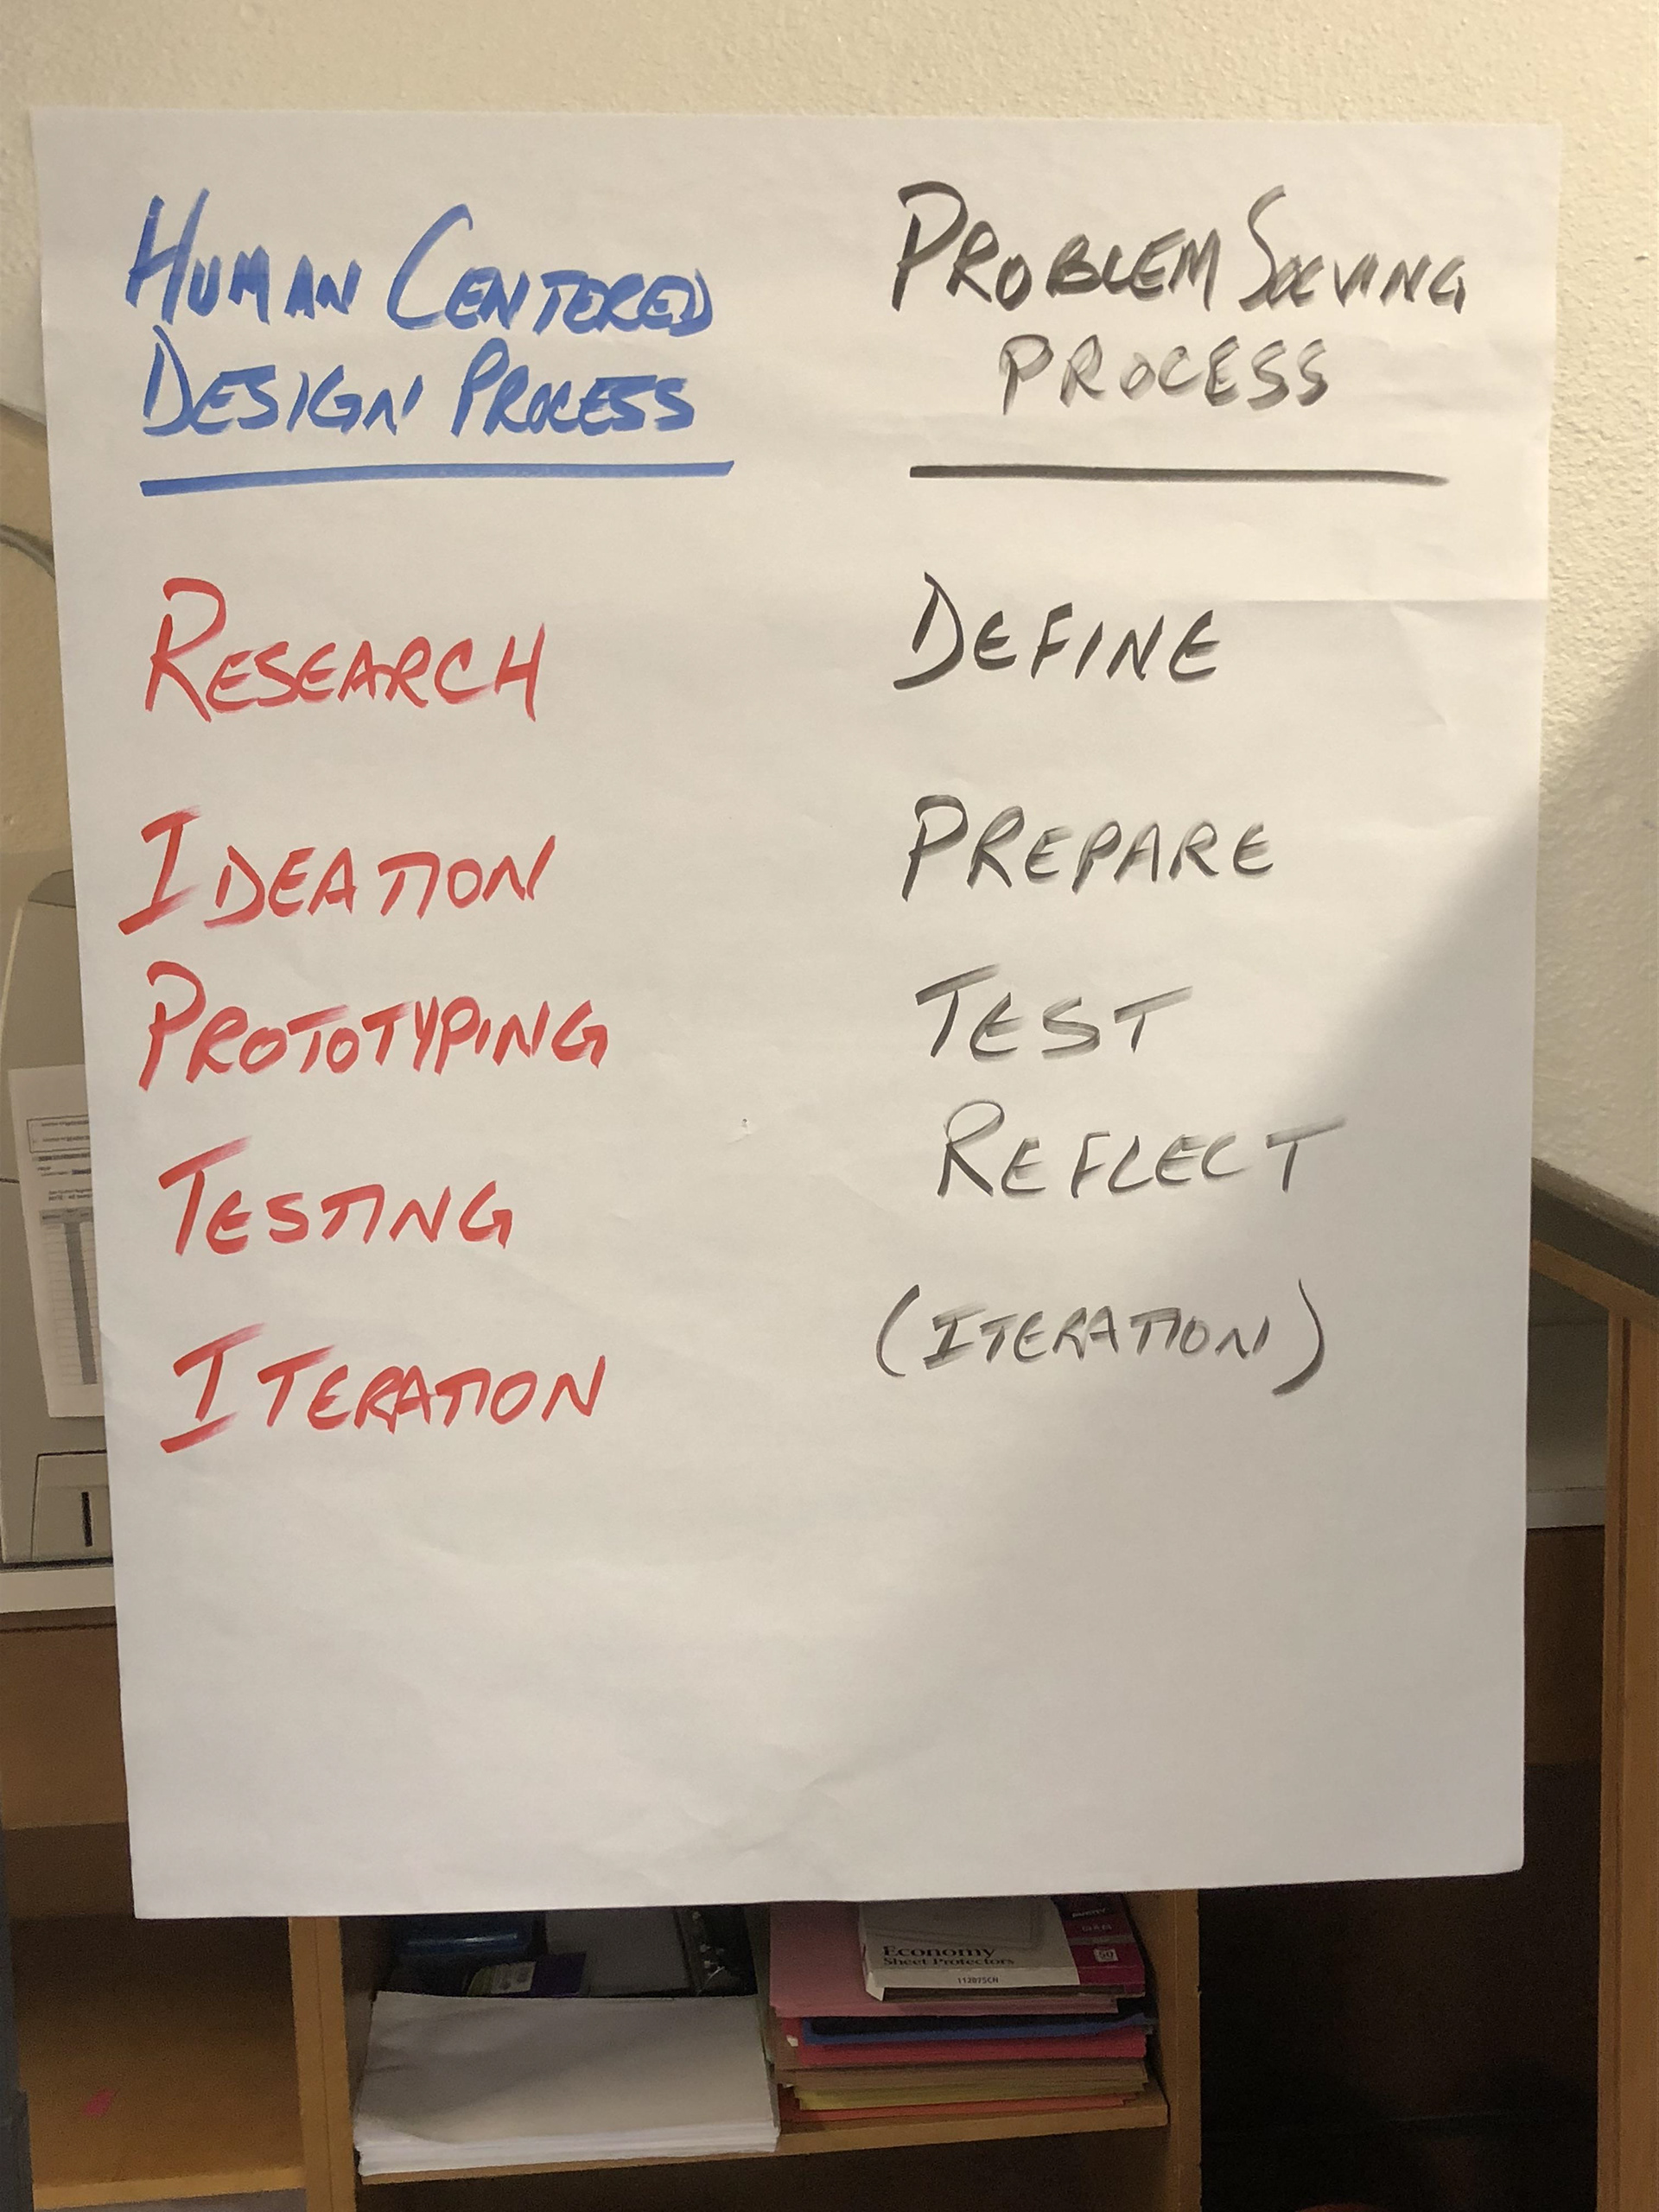 HUMAN CENTERED
DESIGN PROCESS
RESEARCH
IDEATION
PROTOTYPING
TESTING
ITERATION
PROBLEM SOLVING
PROCESS
DEFINE
PREPARE
TEST
REFLECT
(ITERATION)
Economy
Sheet Protectors
50